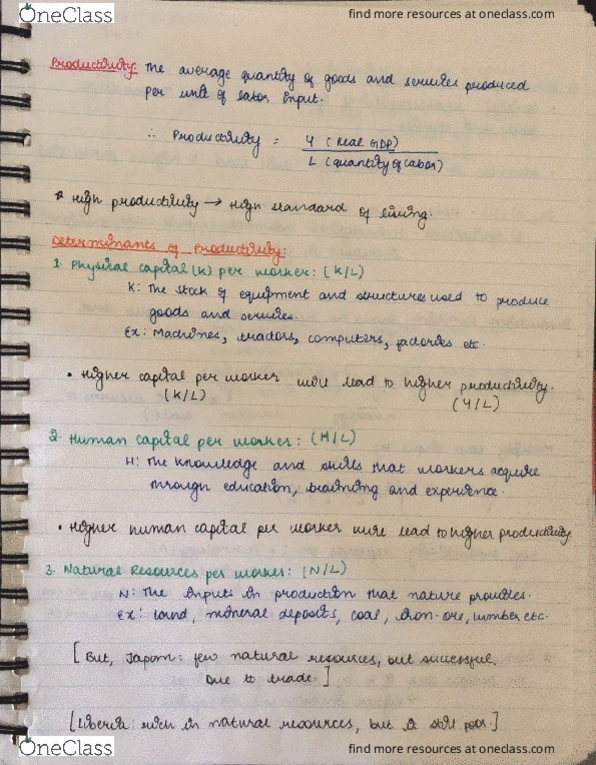 OneClass
find more resources at oneclass.com
Productivity: The average quantity of goods and services produced
per unit of labor input.
∴ Productivity = Y (Real GDP)
L (quantity of labor)
* High productivity → High standard of living.
Determinants of Productivity:
1. Physical capital (K) per worker: (K/L)
K: The stock of equipment and structures used to produce
goods and services.
Ex: Machines, tractors, computers, factories etc.
• Higher capital per worker will lead to higher productivity.
(K/L) (Y/L)
2. Human capital per worker: (H/L)
H: The knowledge and skills that workers acquire
through education, training and experience.
• Higher human capital per worker will lead to higher productivity
3. Natural Resources per worker: (N/L)
N: The inputs in production that nature provides.
Ex: Land, mineral deposits, coal, iron-ore, lumber etc.
[But, Japan: few natural resources, but successful,
Due to trade.]
[Liberia: rich in natural resources, but is still poor.]
OneClass
find more resources at oneclass.com